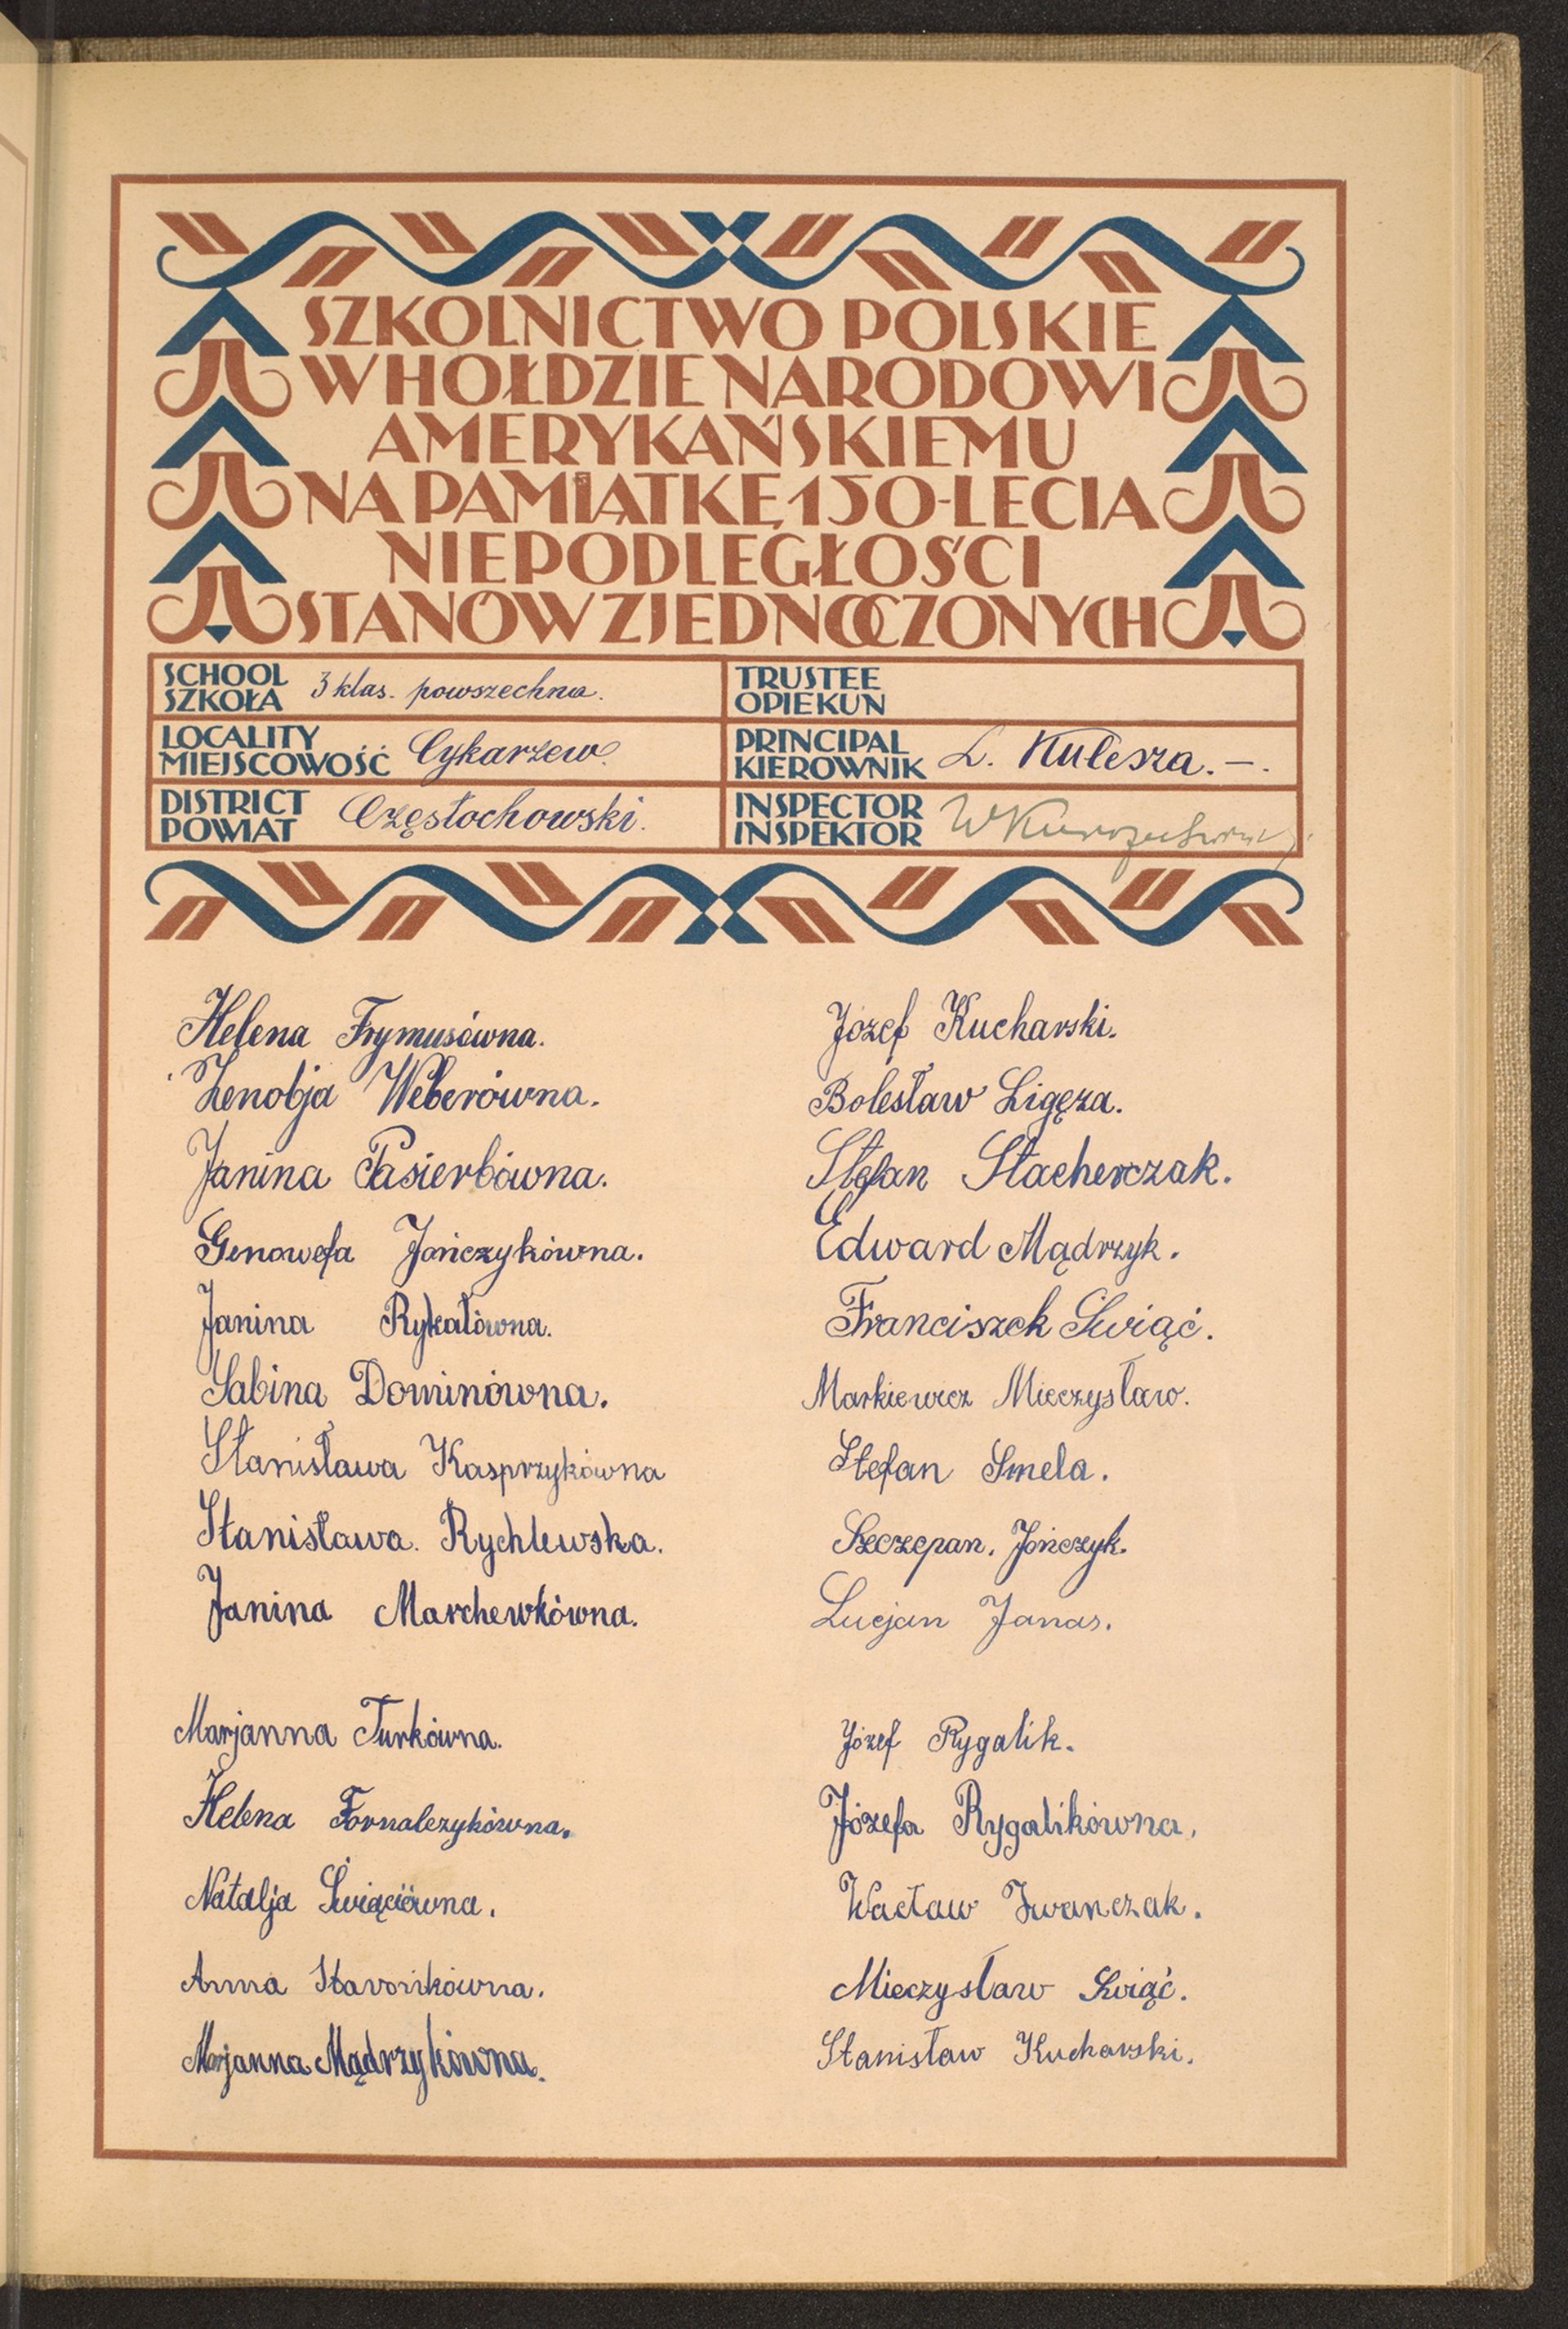 SZKOLNICTWO POLSKIE
W HOŁDZIE NARODOWI
AMERYKAŃSKIEMU
NA PAMIĄTKĘ 150-LECIA
NIEPODLEGŁOŚCI
STANÓW ZJEDNOCZONYCH
SCHOOL
SZKOŁA 3 klas. powszechna.
TRUSTEE
OPIEKUN
LOCALITY
MIEJSCOWOŚĆ Cykarzew.
PRINCIPAL
KIEROWNIK L. Kulesza.-.
DISTRICT
POWIAT Częstochowski.
INSPECTOR
INSPEKTOR
Helena Frymusówna.
Zenobja Weberówna.
Janina Pasierbówna.
Genowefa Jończykówna.
Janina Rykałówna.
Sabina Dominówna.
Stanisława Kasprzykówna
Stanisława. Rychlewska.
Janina Marchewkówna.
Marjanna Turkówna.
Helena Fornalczykówna.
Natalja Świąciówna.
Anna
Marjanna Mądrzykówna.
Józef Kucharski.
Bolesław Ligęza.
Stefan Stacherczak.
Edward Mądrzyk.
Franciszek Świąć.
Markiewicz Mieczysław.
Stefan Smela.
Szczepan. Jończyk.
Lucjan Janas.
Józef Rygalik.
Józefa Rygalikówna.
Wacław Iwanczak.
Mieczysław Świąć.
Stanisław Kucharski.